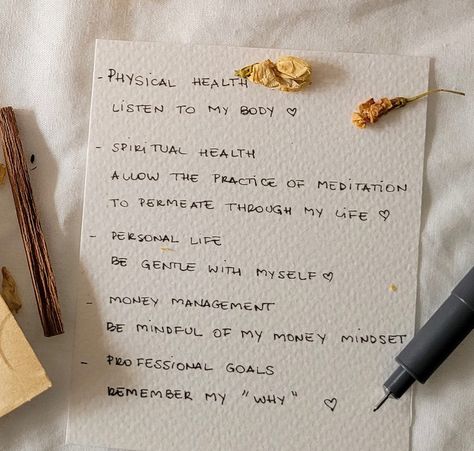 - PHYSICAL HEALTH
LISTEN TO MY BODY ♡
- SPIRITUAL HEALTH
ALLOW THE PRACTICE OF MEDITATION
TO PERMEATE THROUGH MY LIFE ♡
- PERSONAL LIFE
BE GENTLE WITH MYSELF ♡
- MONEY MANAGEMENT
BE MINDFUL OF MY MONEY MINDSET
- PROFESSIONAL GOALS
REMEMBER MY "WHY" ♡